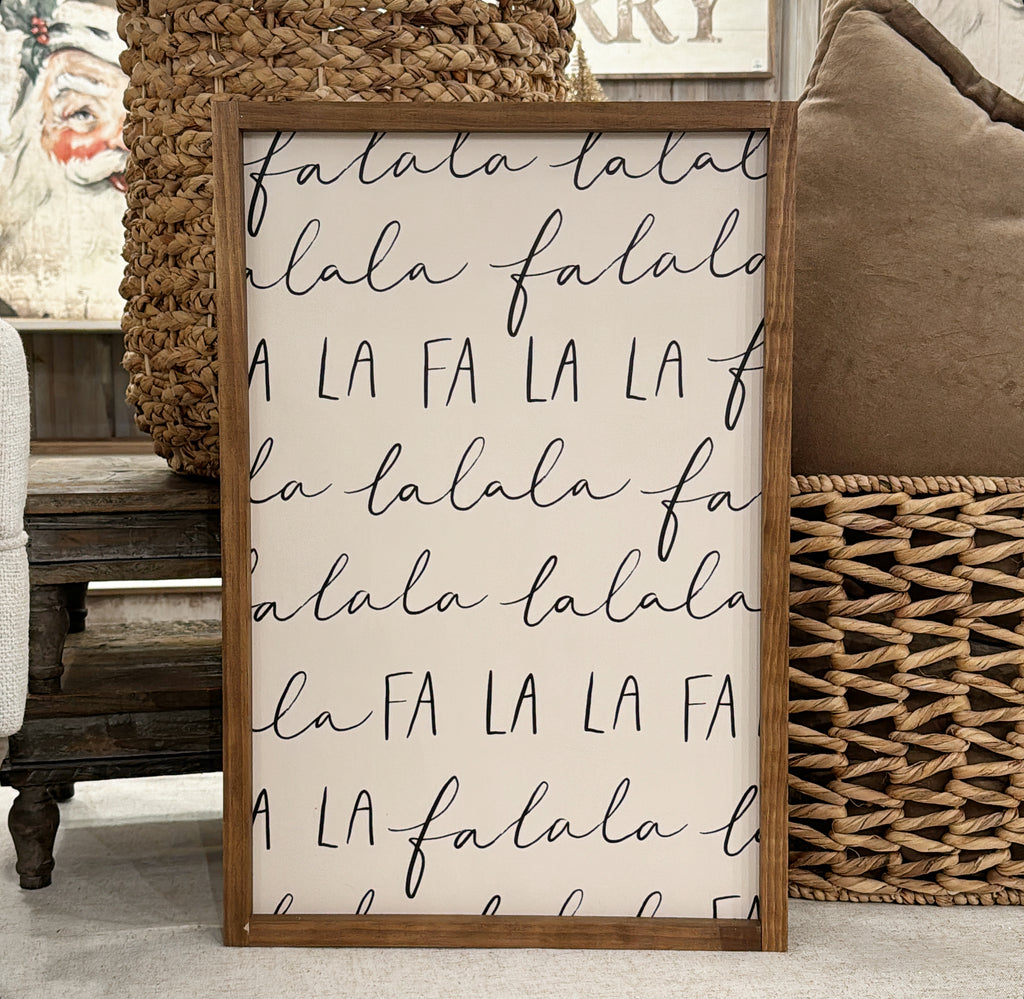 RRY
falala lalal
alala falala
A LA FA LA LA f
la lalala fa
alala lalala
la FA LA LA FA
A LA falala l